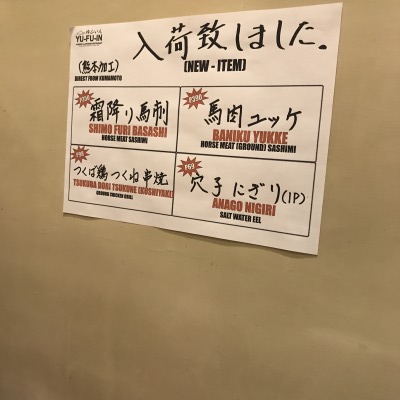 YU-FU-IN
入荷致しました。
(熊本加工)
DIRECT FROM KUMAMOTO
(NEW - ITEM)
霜降り馬刺
SHIMO FURI BASASHI
HORSE MEAT SASHIMI
馬肉ユッケ
BANIKU YUKKE
HORSE MEAT (GROUND) SASHIMI
つくば鶏つくね串焼
TSUKUBA DORI TSUKUNE (KUSHIYAKI)
GROUND CHICKEN GRILL
穴子にぎり(1P)
ANAGO NIGIRI
SALT WATER EEL